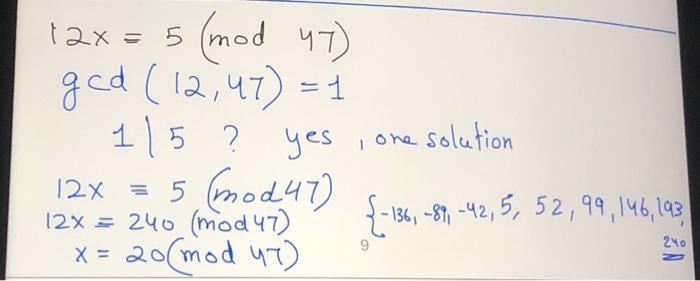 12x ≡ 5 (mod 47)
gcd (12,47) = 1
1 | 5 ? yes , one solution
12x ≡ 5 (mod 47)
12x ≡ 240 (mod 47)
x ≡ 20 (mod 47)
{-136, -89, -42, 5, 52, 99, 146, 193,
240
9